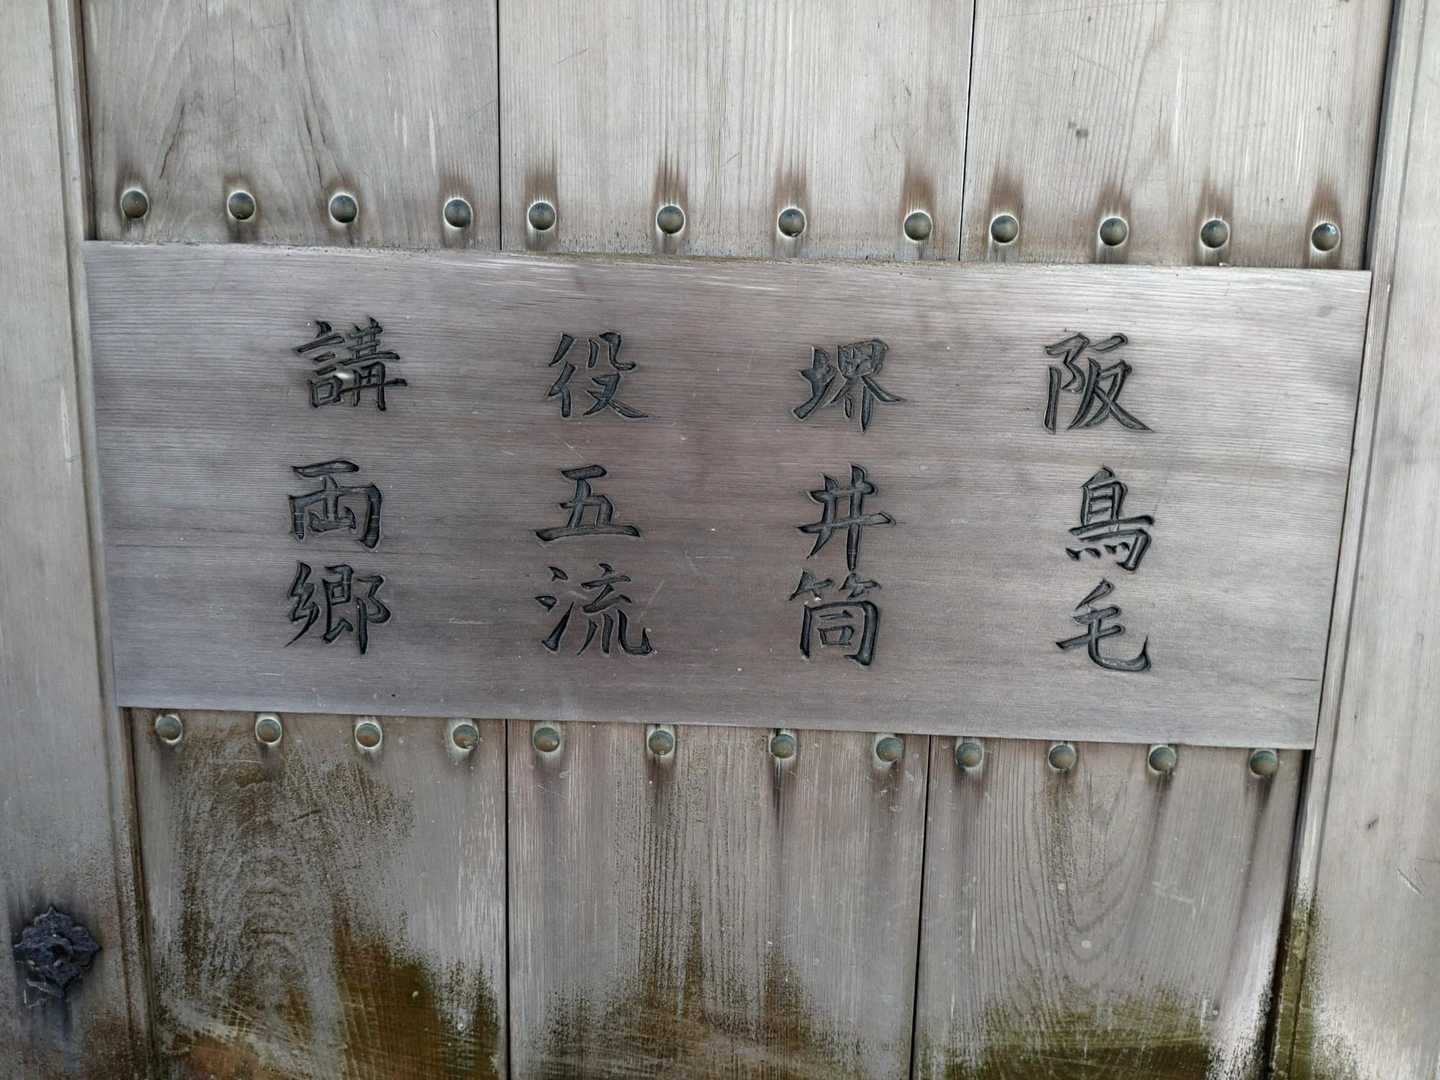 阪鳥毛
堺井筒
役五流
講両郷